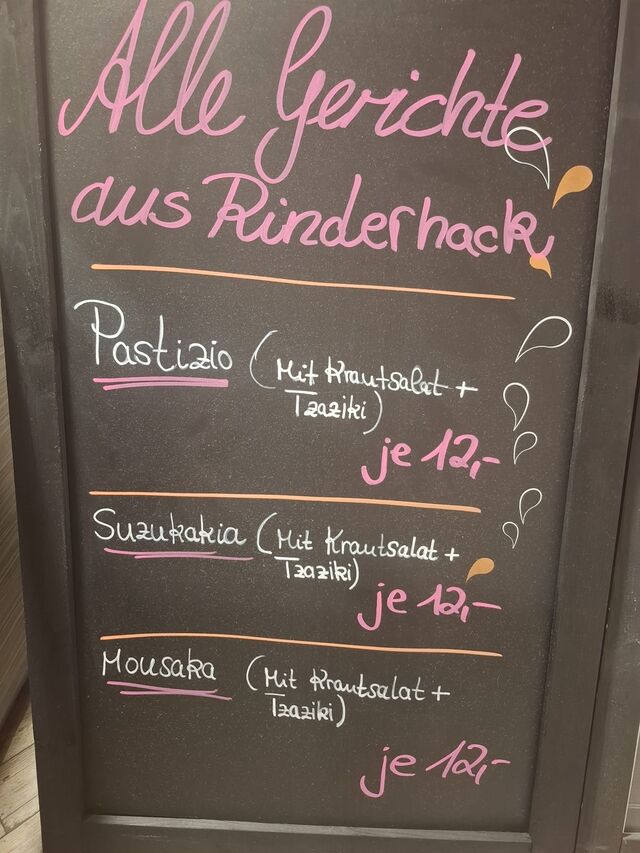 Alle Gerichte
aus Rinderhack
Pastizio (Mit Krautsalat +
Tzaziki)
je 12,-
Suzukakia (Mit Krautsalat +
Tzaziki)
je 12,-
Mousaka (Mit Krautsalat +
Tzaziki)
je 12,-